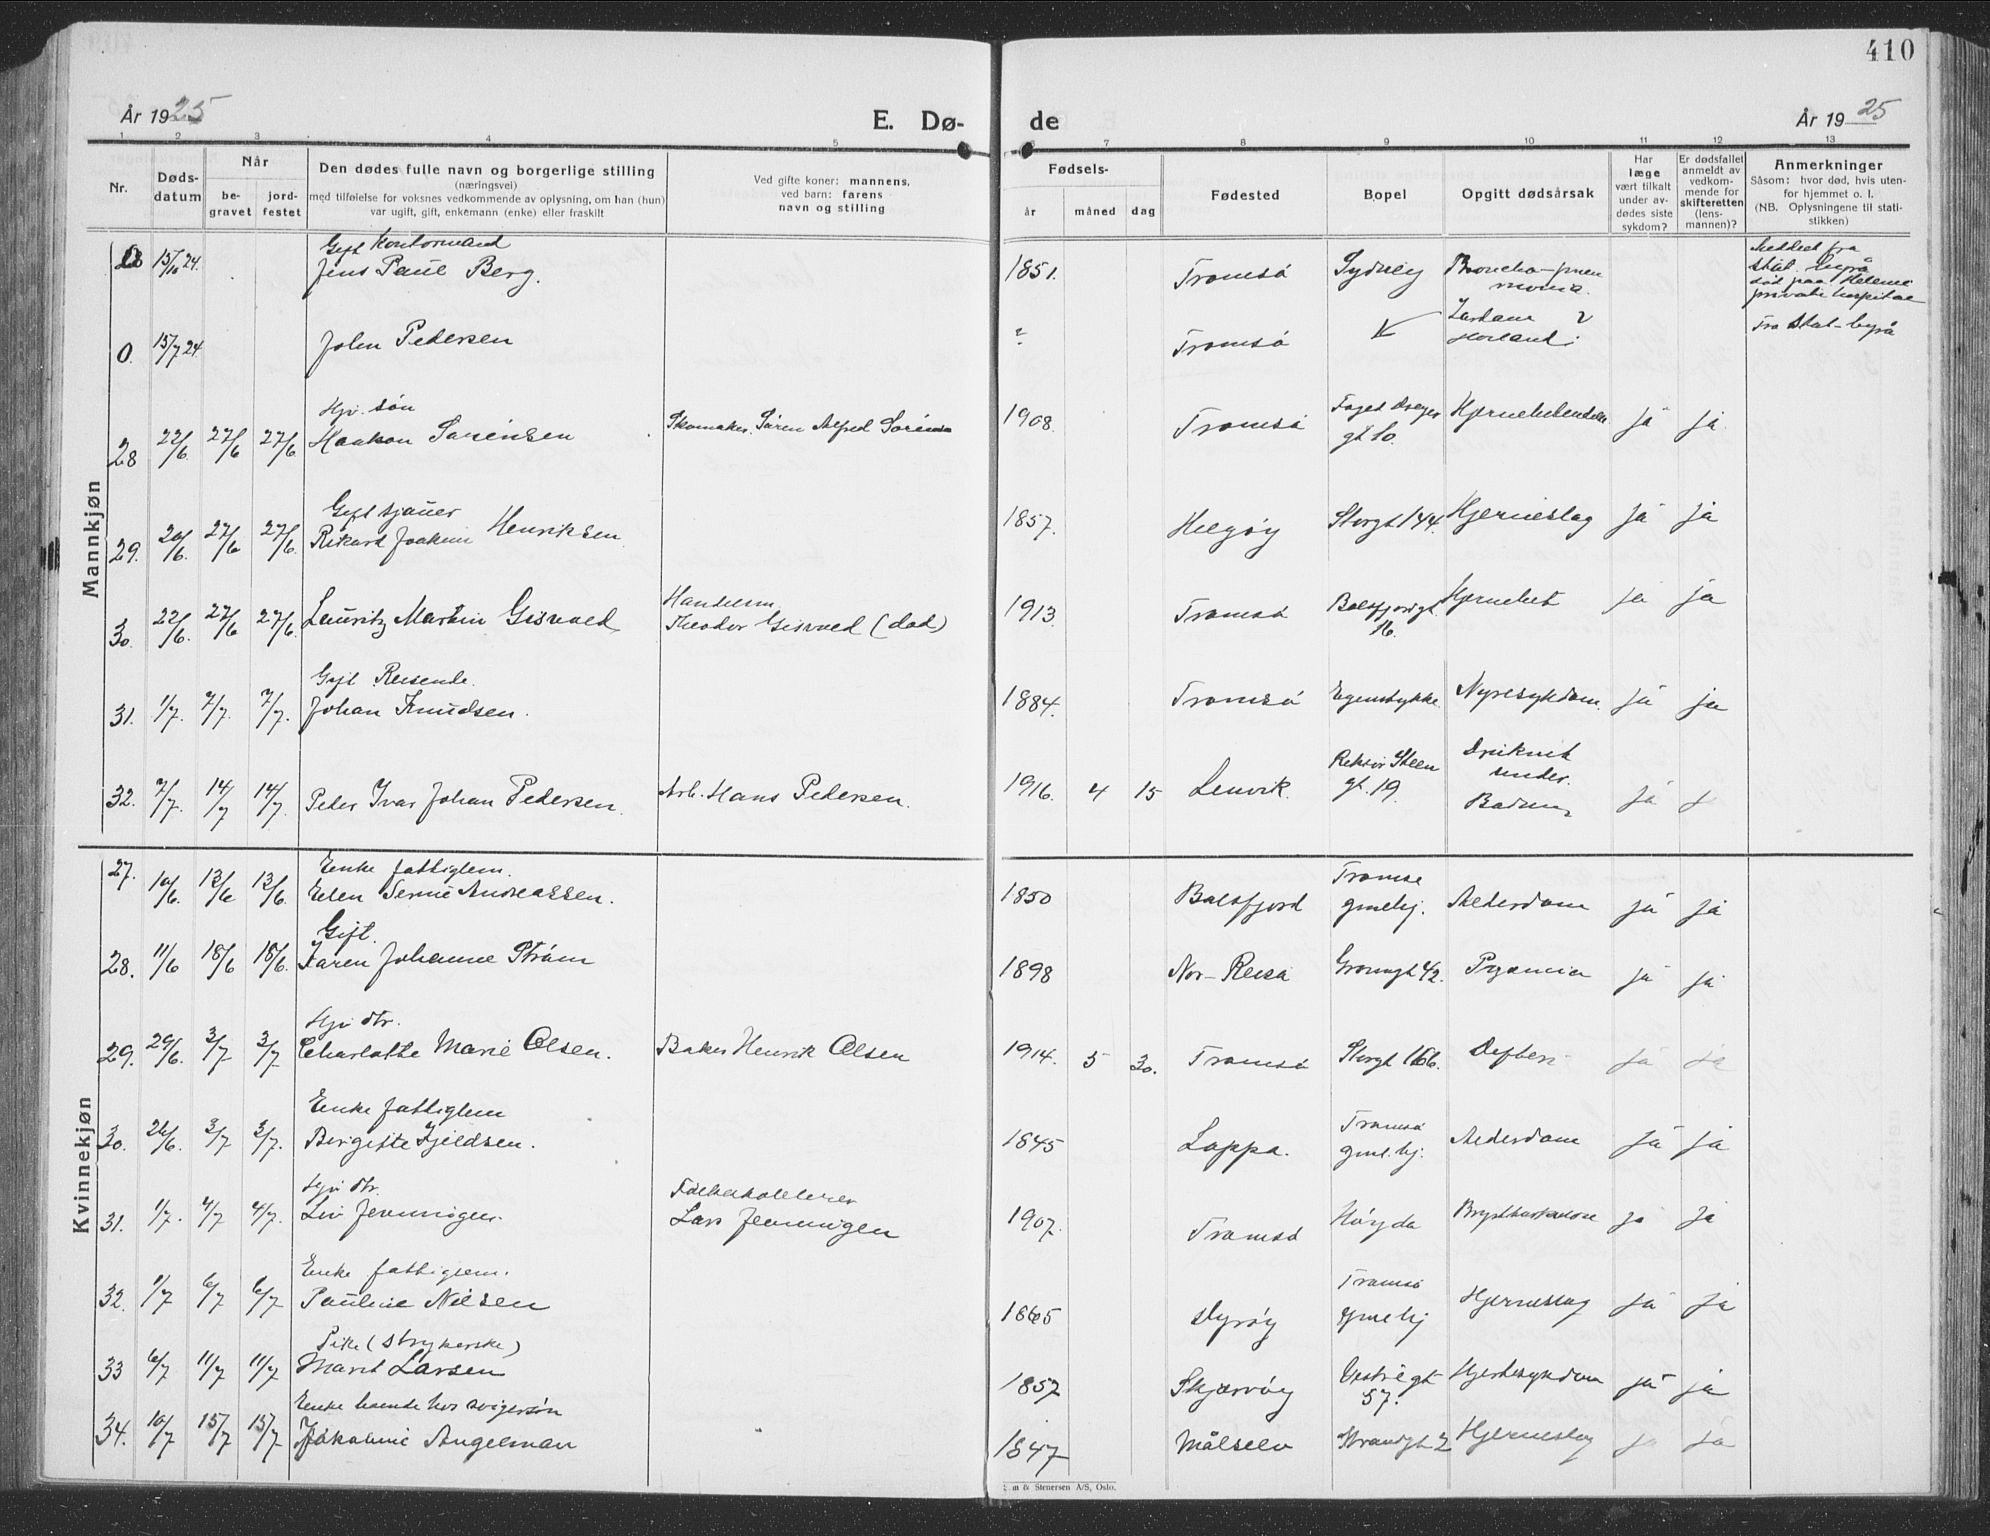 410
År 1925
E. Dø-
de
År 1925
1 2 3 4 5 6 7 8 9 10 11 12 13
Nr.
Døds-
datum
Når
be-
gravet
jord-
festet
Den dødes fulle navn og borgerlige stilling
(næringsvei)
med tilføielse for voksnes vedkommende av oplysning, om han (hun)
var ugift, gift, enkemann (enke) eller fraskilt
Ved gifte koner: mannens,
ved barn: farens
navn og stilling
Fødsels-
år
måned
dag
Fødested
Bopel
Opgitt dødsårsak
Har
læge
vært tilkalt
under av-
dødes siste
sykdom?
Er dødsfallet
anmeldt av
vedkom-
mende for
skifteretten
(lens-
mannen)?
Anmerkninger
Såsom: hvor død, hvis uten-
for hjemmet o. l.
(NB. Oplysningene til stati-
stikken)
Mannkjøn
15/10 24.
Gift
Jens Paul Berg.
1851.
Tromsø
Sydney
Broncho-pneu
monia.
Meddelt fra
stat. byrå
død paa Helene
private hospital
0. 15/7 24.
John Pedersen
?
Tromsø
Fra Stat-byrå
28 22/6. 27/6 27/6.
Hjv. søn
Haakon Sørensen
Skomaker Søren Alfred Sørensen
1908.
Tromsø
gt 10.
ja ja
29. 20/6. 27/6 27/6.
Gift sjauer
Rikard Joakim Henriksen
1857.
Helgøy
Storgt 144.
Hjerneslag
ja ja
30. 22/6. 27/6 27/6.
Lauritz Martin Gisvold
Handelsm
Theodor Gisvold (død)
1913.
Tromsø
Balsfjordgt
16.
ja ja
31. 1/7. 7/7. 7/7.
Gift Reisende.
Johan Knudsen.
1884.
Tromsø
Nyresykdom.
ja ja
32. 7/7. 14/7 14/7.
Peder Ivar Johan Pedersen.
Arb. Hans Pedersen.
1916. 4 15
Lenvik.
Rektor Steen
gt. 19.
Druknet
under
Badning
ja
Kvinnekjøn
27. 10/6. 12/6 12/6.
Enke fattiglem.
Elen Serine Andreassen.
1850
Balsfjord
Tromsø
gmlhj.
Alderdom
ja ja
28. 11/6 18/6 18/6.
Gift.
Karen Johanne Strøm
1898
Nor-Reisa
Grønngt 42.
Pyæmia
ja ja
29. 29/6. 3/7 3/7
Hjv dtr.
Charlotte Marie Olsen.
Baker Henrik Olsen
1914. 5 30.
Tromsø
Storgt 166.
Difteri
ja ja
30. 26/6. 3/7 3/7.
Enke fattiglem
Birgitte Kjeldsen.
1845
Loppa.
Tromsø
gml. hj.
Alderdom
ja ja
31. 1/7. 4/7 4/7.
Hjv dtr.
Liv Jenningen.
Folkeskolelærer
Lars Jenningen
1907.
Tromsø
Høyda
ja ja
32. 1/7 6/7 6/7
Enke fattiglem.
Pauline Nilsen
1865
Dyrøy
Tromsø
gmlhj
Hjerneslag
ja ja
33 6/7 11/7 11/7
Pike (strykerske)
Marit Larsen
1857
Skjærvøy
Vestregt
57.
Hjertesykdom
ja ja
34. 10/7 15/7 15/7
Enke boende hos svigersøn
Jakobine Angelman
1847
Målselv
Strandgt 2
Hjerneslag
ja ja
& Stenersen A/S, Oslo.